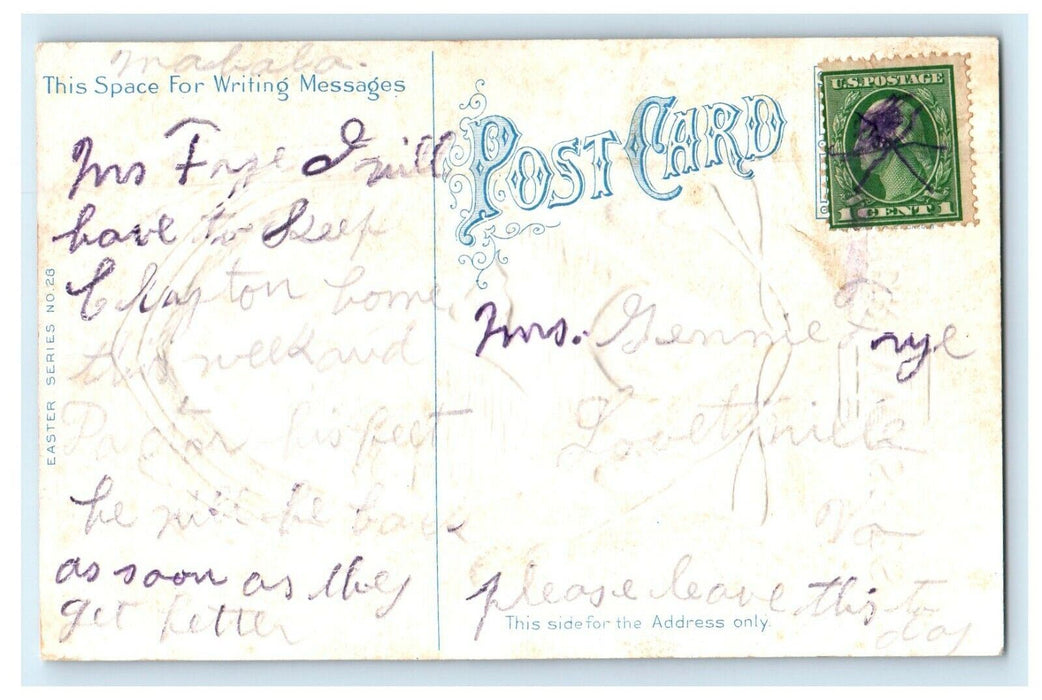 mahala.
This Space For Writing Messages
Mrs Frye I will
have to keep
Clayton home,
this week and
his feet
he will be back
as soon as they
get better
EASTER SERIES NO. 28
POST CARD
U.S. POSTAGE
1 CENT 1
Mrs. Gennie Frye
Va
please leave this to
day
This side for the Address only.